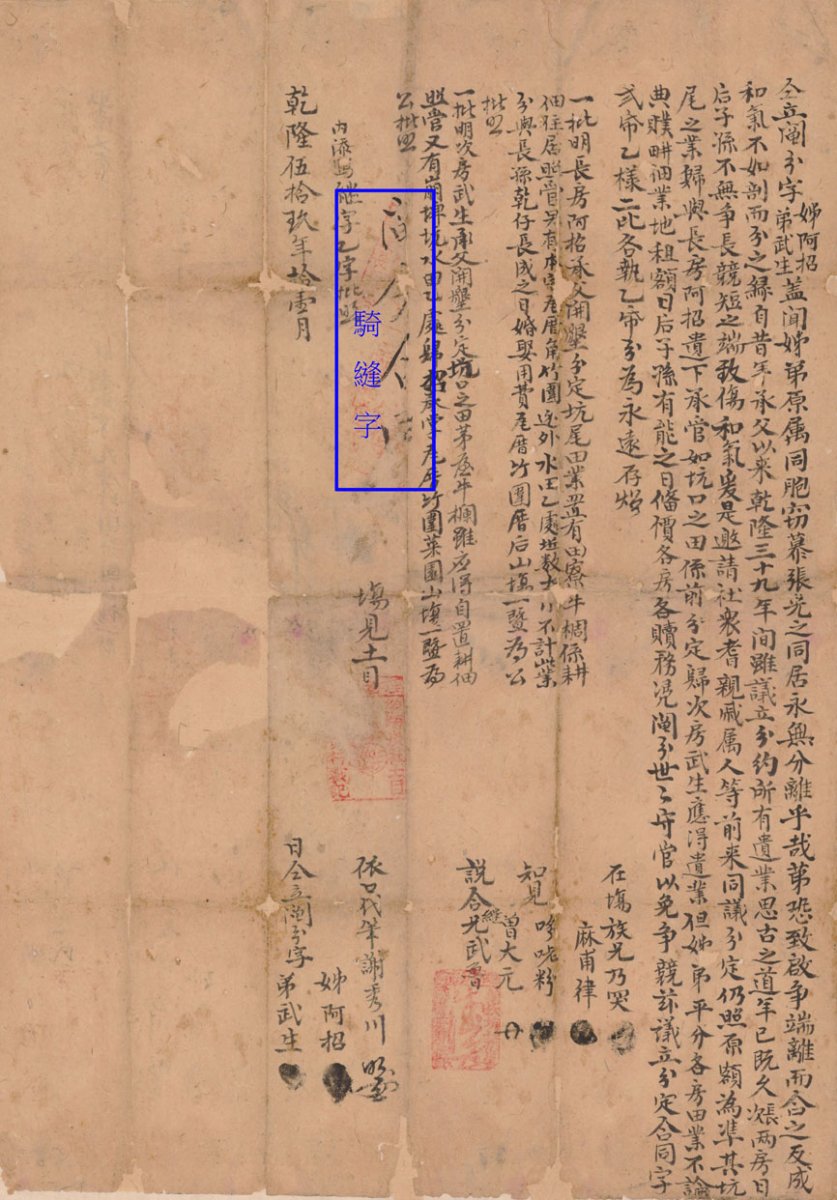 仝立鬮分字姊阿招弟武生蓋聞姊弟原属同胞窃慕張公之同居永無分離乎哉第恐致啟争端離而合之反成
和氣不如剖而分之緣自昔年承父以來乾隆三十九年间雖議立分約所有遺業思古之道年已既久次張两房日
后子孫不無争長競短之端致傷和氣爰是邀請社衆耆親戚属人等前來同議分定仍照原額為準其坑
尾之業歸與長房阿招遺下承管如坑口之田係前分定歸次房武生應得遺業但姊弟平分各房田業不論
典贌畊佃業地租額日后子孫有能之日俻價各房各贖務凴鬮分世々守管以免争競玆議立分定合同字
弍帋乙樣二比各執乙帋分為永遠存炤
一批明長房阿招承父開墾分定坑尾田業置有田寮牛椆係耕
佃住居照管另有本宅厝角竹圍 外水田乙處坵数大小不計業
分與長孫乾仔長成之日婚娶用費 厝竹圍厝后山塲一暨為公
批照
一批明次房武生承父開墾分定坑口之田茅屋牛欄雖应得自置耕佃
照管又有崩埤坑水田乙處歸招承管 厝竹圍菜園山塲一暨為
公批照
騎縫字
内添 継字乙字批照
在塲族兄乃哭
麻甫律
知見 粉
曾大元
説合尤武晉
塲見土目
依口代筆謝秀川
姊阿招
乾隆伍拾玖年拾壹月 日仝立鬮分字弟武生